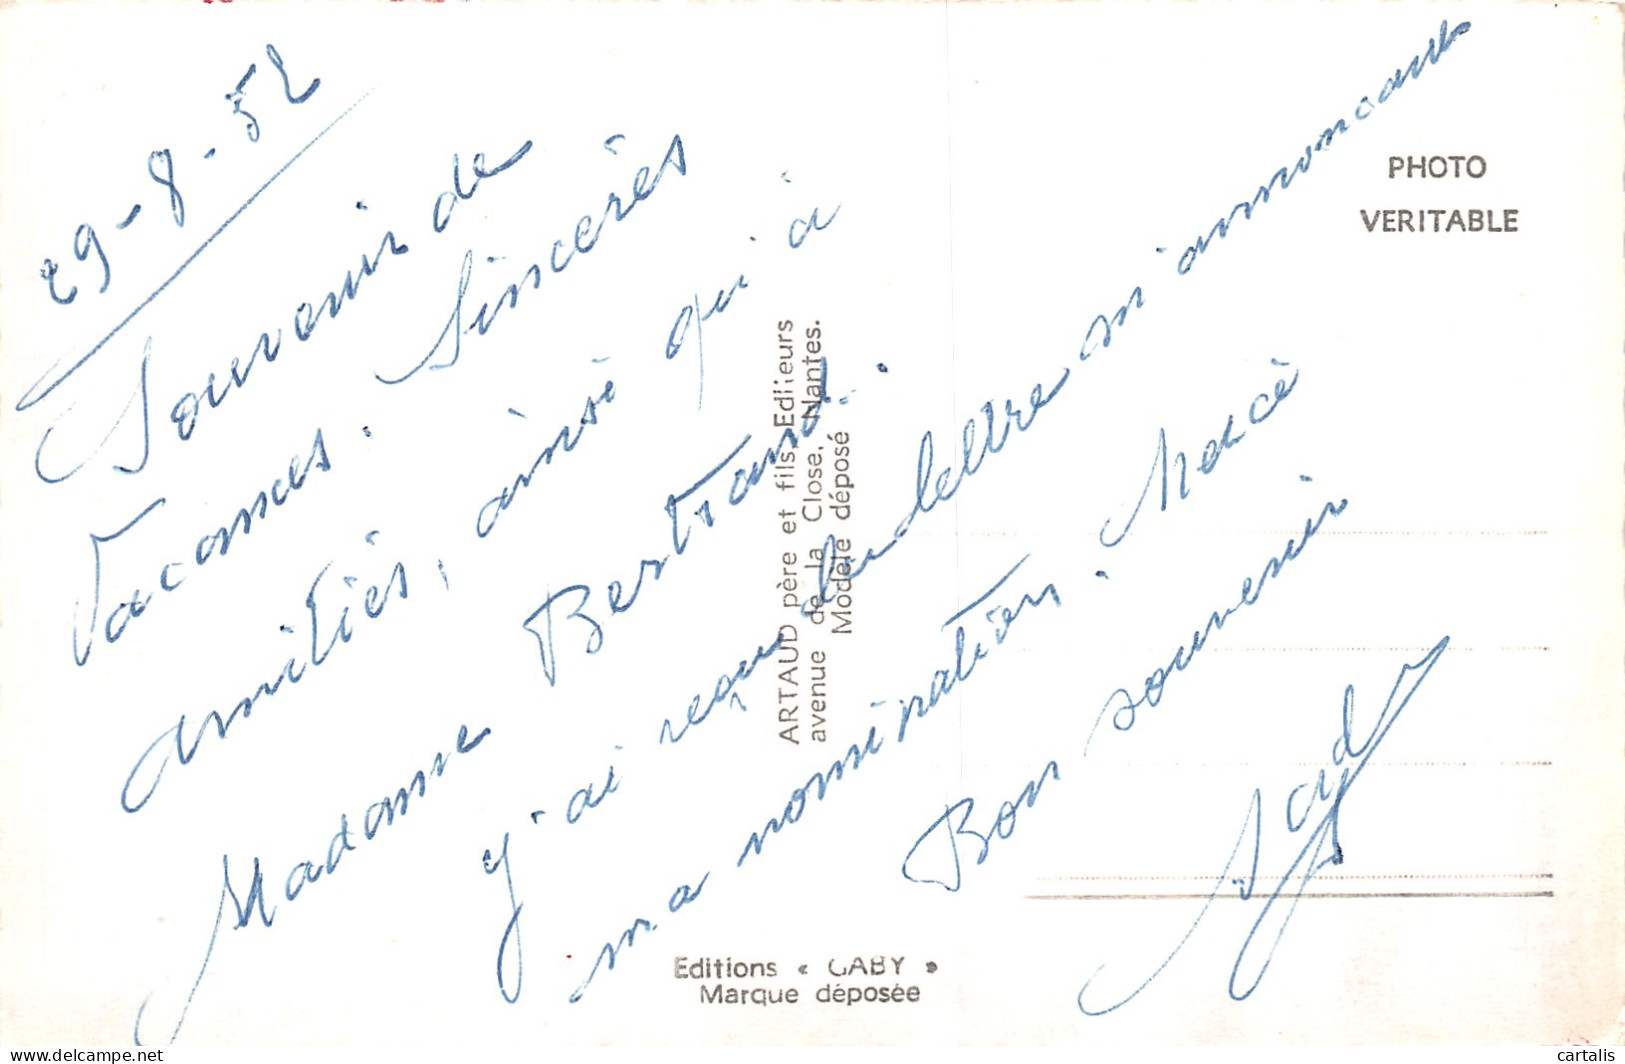 29-8-52
Souvenir de
Vacances. Sincères
amitiés, ainsi qu'à
Madame Bertrand.
J'ai reçu la lettre m'annonçant
ma nomination. Merci
Bon souvenir
PHOTO
VERITABLE
ARTAUD père et fils, Editeurs
avenue de la Close, Nantes.
Modèle déposé
Editions « GABY »
Marque déposée
www.delcampe.net
cartalis